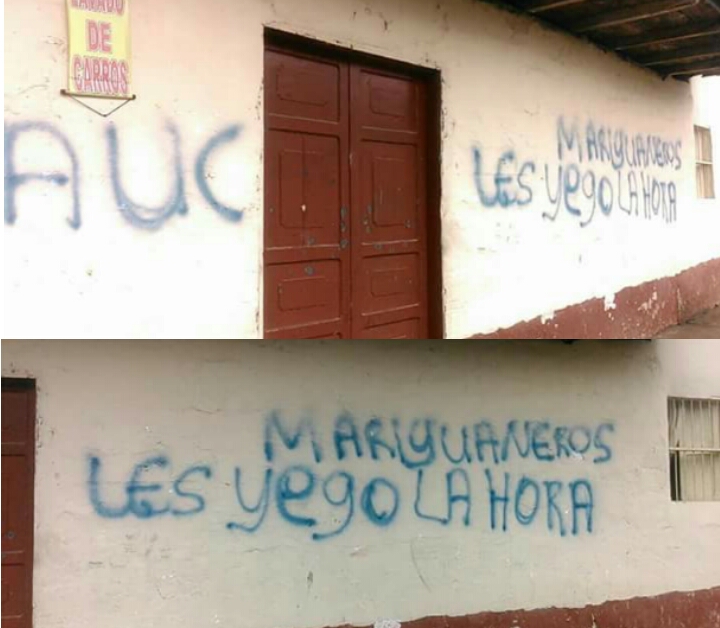 LAVADO
DE
CARROS
AUC
MARIGUANEROS
LES yego LA HORA
MARIGUANEROS
LES yego LA HORA